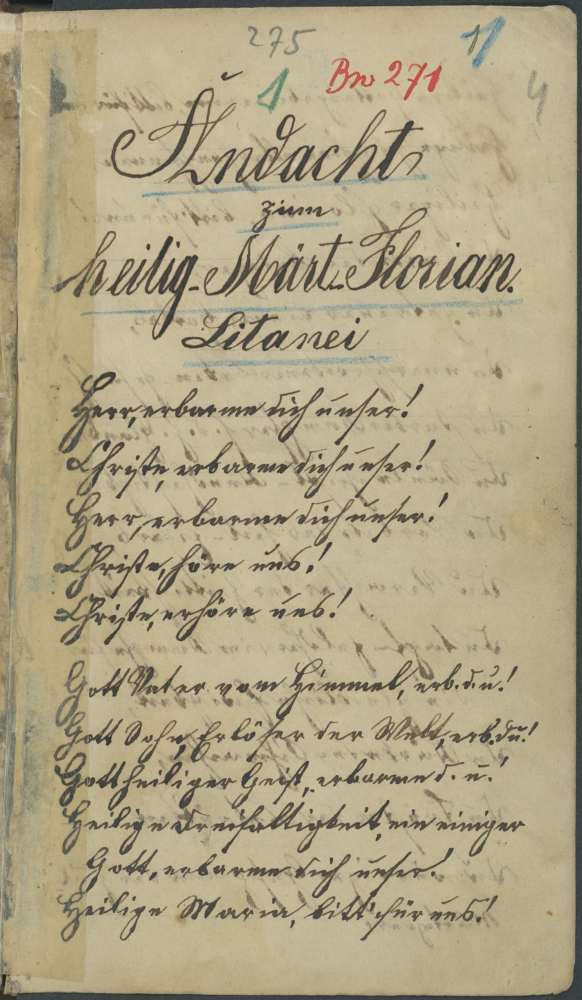 275
1
Bn 271
1
4
Andacht
zum
heilig-Märt-Florian.
Litanei
Herr, erbarme dich unser!
Christe, erbarme dich unser!
Herr, erbarme dich unser!
Christe, höre uns!
Christe, erhöre uns!
Gott Vater vom Himmel, erb. d. u.!
Gott Sohn, Erlöser der Welt, erb. d u!
Gott heiliger Geist, erbarme d. u.!
Heilige Dreifaltigkeit, ein einiger
Gott, erbarme dich unser!
Heilige Maria, bitt für uns!